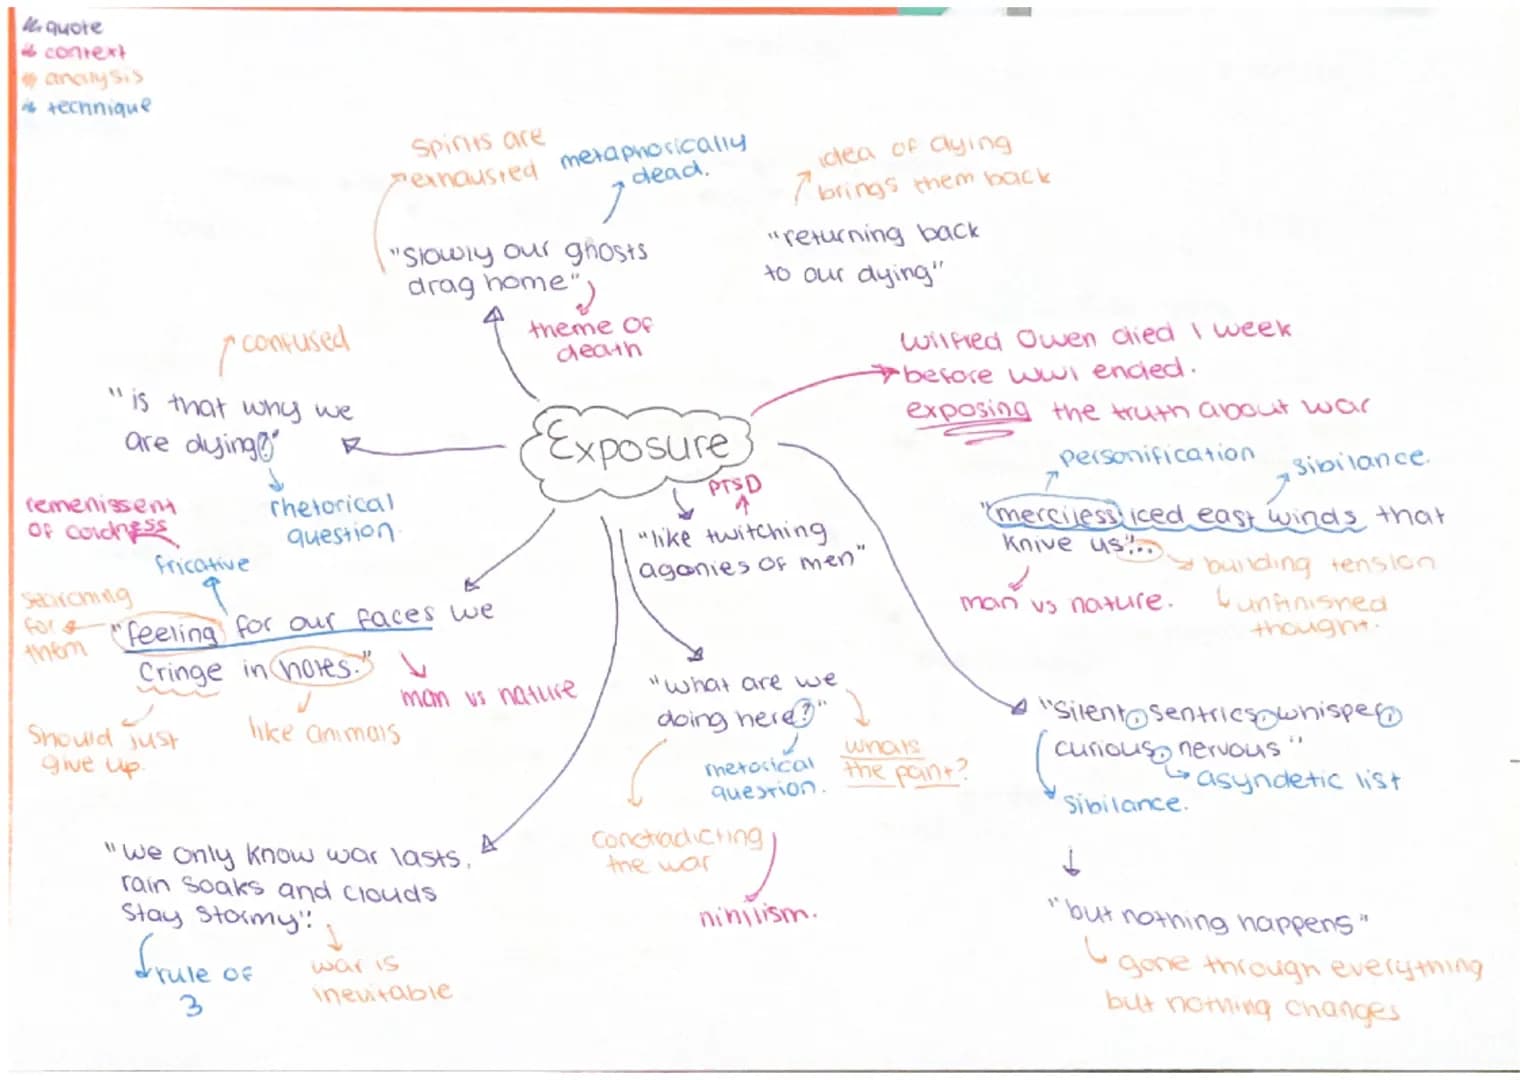 quote
context
analysis
technique
Spirits are
exhausted
metaphorically
dead.
idea of dying
brings them back
"Slowly our ghosts
drag home"
theme of
death
"returning back
to our dying"
confused
"is that why we
are dying?"
rhetorical
question.
Exposure
Wilfred Owen died 1 week
before WW1 ended.
exposing the truth about war
personification
sibilance.
"merciless iced east winds that
knive us"...
building tension
unfinished
thought.
man vs nature.
PTSD
"like twitching
agonies of men"
remenissent
of coldness
fricative
searching
for
them
"feeling for our faces we
Cringe in holes."
man vs nature
Should just
give up.
like animals
"what are we
doing here?"
rhetorical
question.
whats
the point?
Conctradicting
the war
nihilism.
"Silent, sentries, whisper,
curious, nervous"
asyndetic list
Sibilance.
"but nothing happens"
gone through everything
but nothing changes
"we only know war lasts,
rain soaks and clouds
Stay stormy".
rule of
3
war is
inevitable